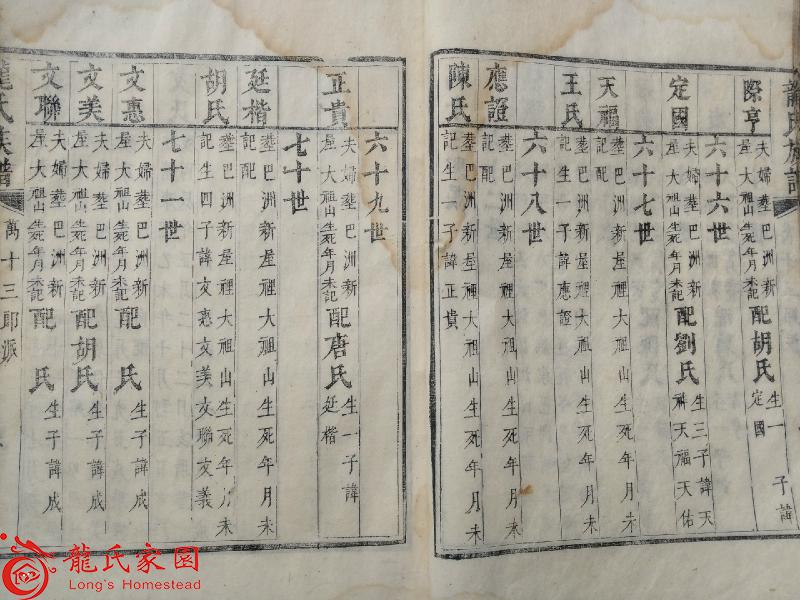 龍氏族譜
際亨
夫婦塟巴洲新
屋大祖山生死年月未記
配胡氏
生一子諱
定國
六十六世
定國
夫婦塟巴洲新
屋大祖山生死年月未記
配劉氏
生三子諱天
天福天佑
六十七世
天福
塟巴洲新屋裡大祖山生死年月未
記配
王氏
塟巴洲新屋裡大祖山生死年月未
記生一子諱應證
六十八世
應證
塟巴洲新屋裡大祖山生死年月未
記配
陳氏
塟巴洲新屋裡大祖山生死年月未
記生一子諱正貴
六十九世
正貴
夫婦塟巴洲新
屋大祖山生死年月未記
配唐氏
生一子諱
延楷
七十世
延楷
塟巴洲新屋裡大祖山生死年月未
記配
胡氏
塟巴洲新屋裡大祖山生死年月未
記生四子諱文惠文美文聯文義
七十一世
文惠
夫婦塟巴洲新
屋大祖山生死年月未記
配 氏
生子諱成
文美
夫婦塟巴洲新
屋大祖山生死年月未記
配胡氏
生子諱成
文聯
夫婦塟巴洲新
屋大祖山生死年月未記
配 氏
生子諱成
龍氏族譜
萬十三郎派
龍氏家園
Long's Homestead